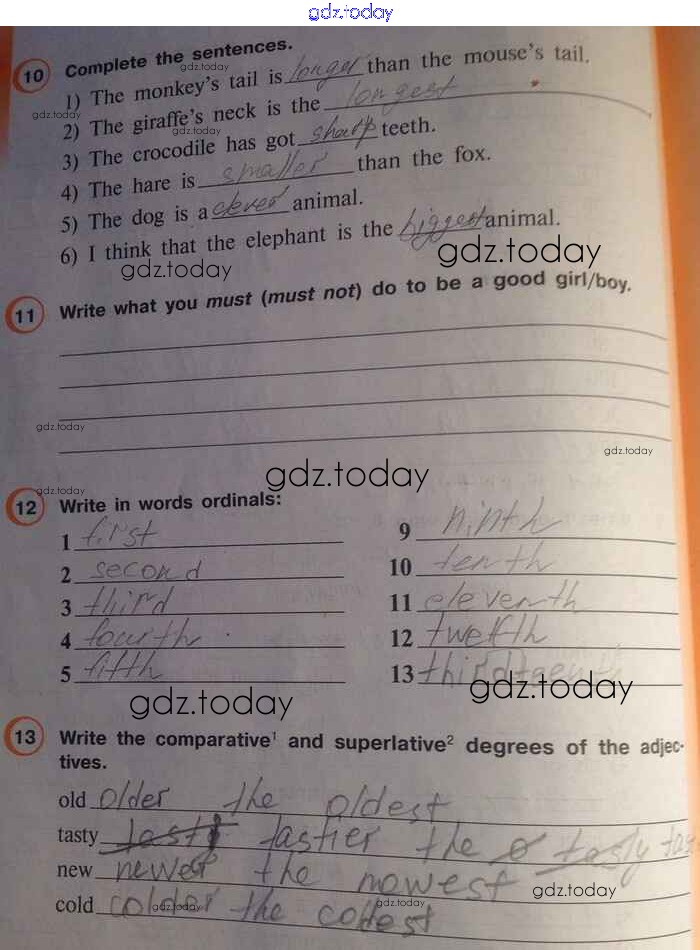 gdz.today
10 Complete the sentences.
gdz.today
1) The monkey's tail is longer than the mouse's tail.
gdz.today
2) The giraffe's neck is the longest
gdz.today
3) The crocodile has got sharp teeth.
4) The hare is smaller than the fox.
5) The dog is a clever animal.
6) I think that the elephant is the biggest animal.
gdz.today
gdz.today
11 Write what you must (must not) do to be a good girl/boy.
gdz.today
gdz.today
gdz.today
gdz.today
12 Write in words ordinals:
1 first 9 ninth
2 second 10 tenth
3 third 11 eleventh
4 fourth 12 twelfth
5 fifth 13
gdz.today
gdz.today
13 Write the comparative¹ and superlative² degrees of the adjec-
tives.
old older the oldest
tasty tasty tastier the tasty
new newer the newest
gdz.today
cold colder the coldest
gdz.today
gdz.today